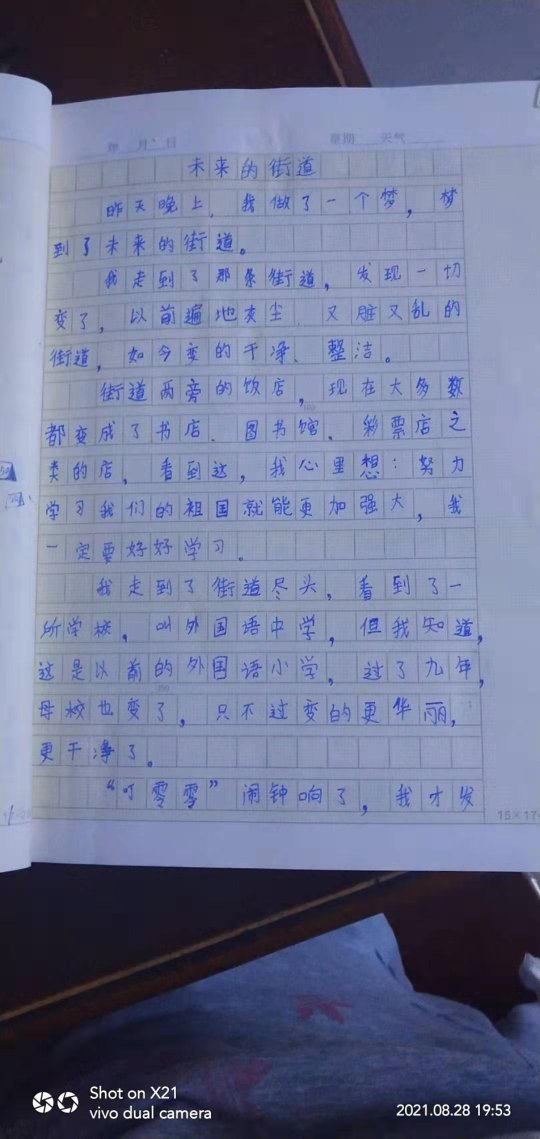 年 月 日 星期 天气
未来的街道
昨天晚上，我做了一个梦，梦
到了未来的街道。
我走到了那条街道，发现一切
变了，以前遍地灰尘、又脏又乱的
街道，如今变的干净、整洁。
街道两旁的饮店，现在大多数
都变成了书店、图书馆、彩票店之
类的店，看到这，我心里想：努力
学习我们的祖国就能更加强大，我
一定要好好学习。
我走到了街道尽头，看到了一
所学校，叫外国语中学，但我知道，
这是以前的外国语小学，过了九年，
母校也变了，只不过变的更华丽，
更干净了。
“叮零零”闹钟响了，我才发
Shot on X21
vivo dual camera
2021.08.28 19:53